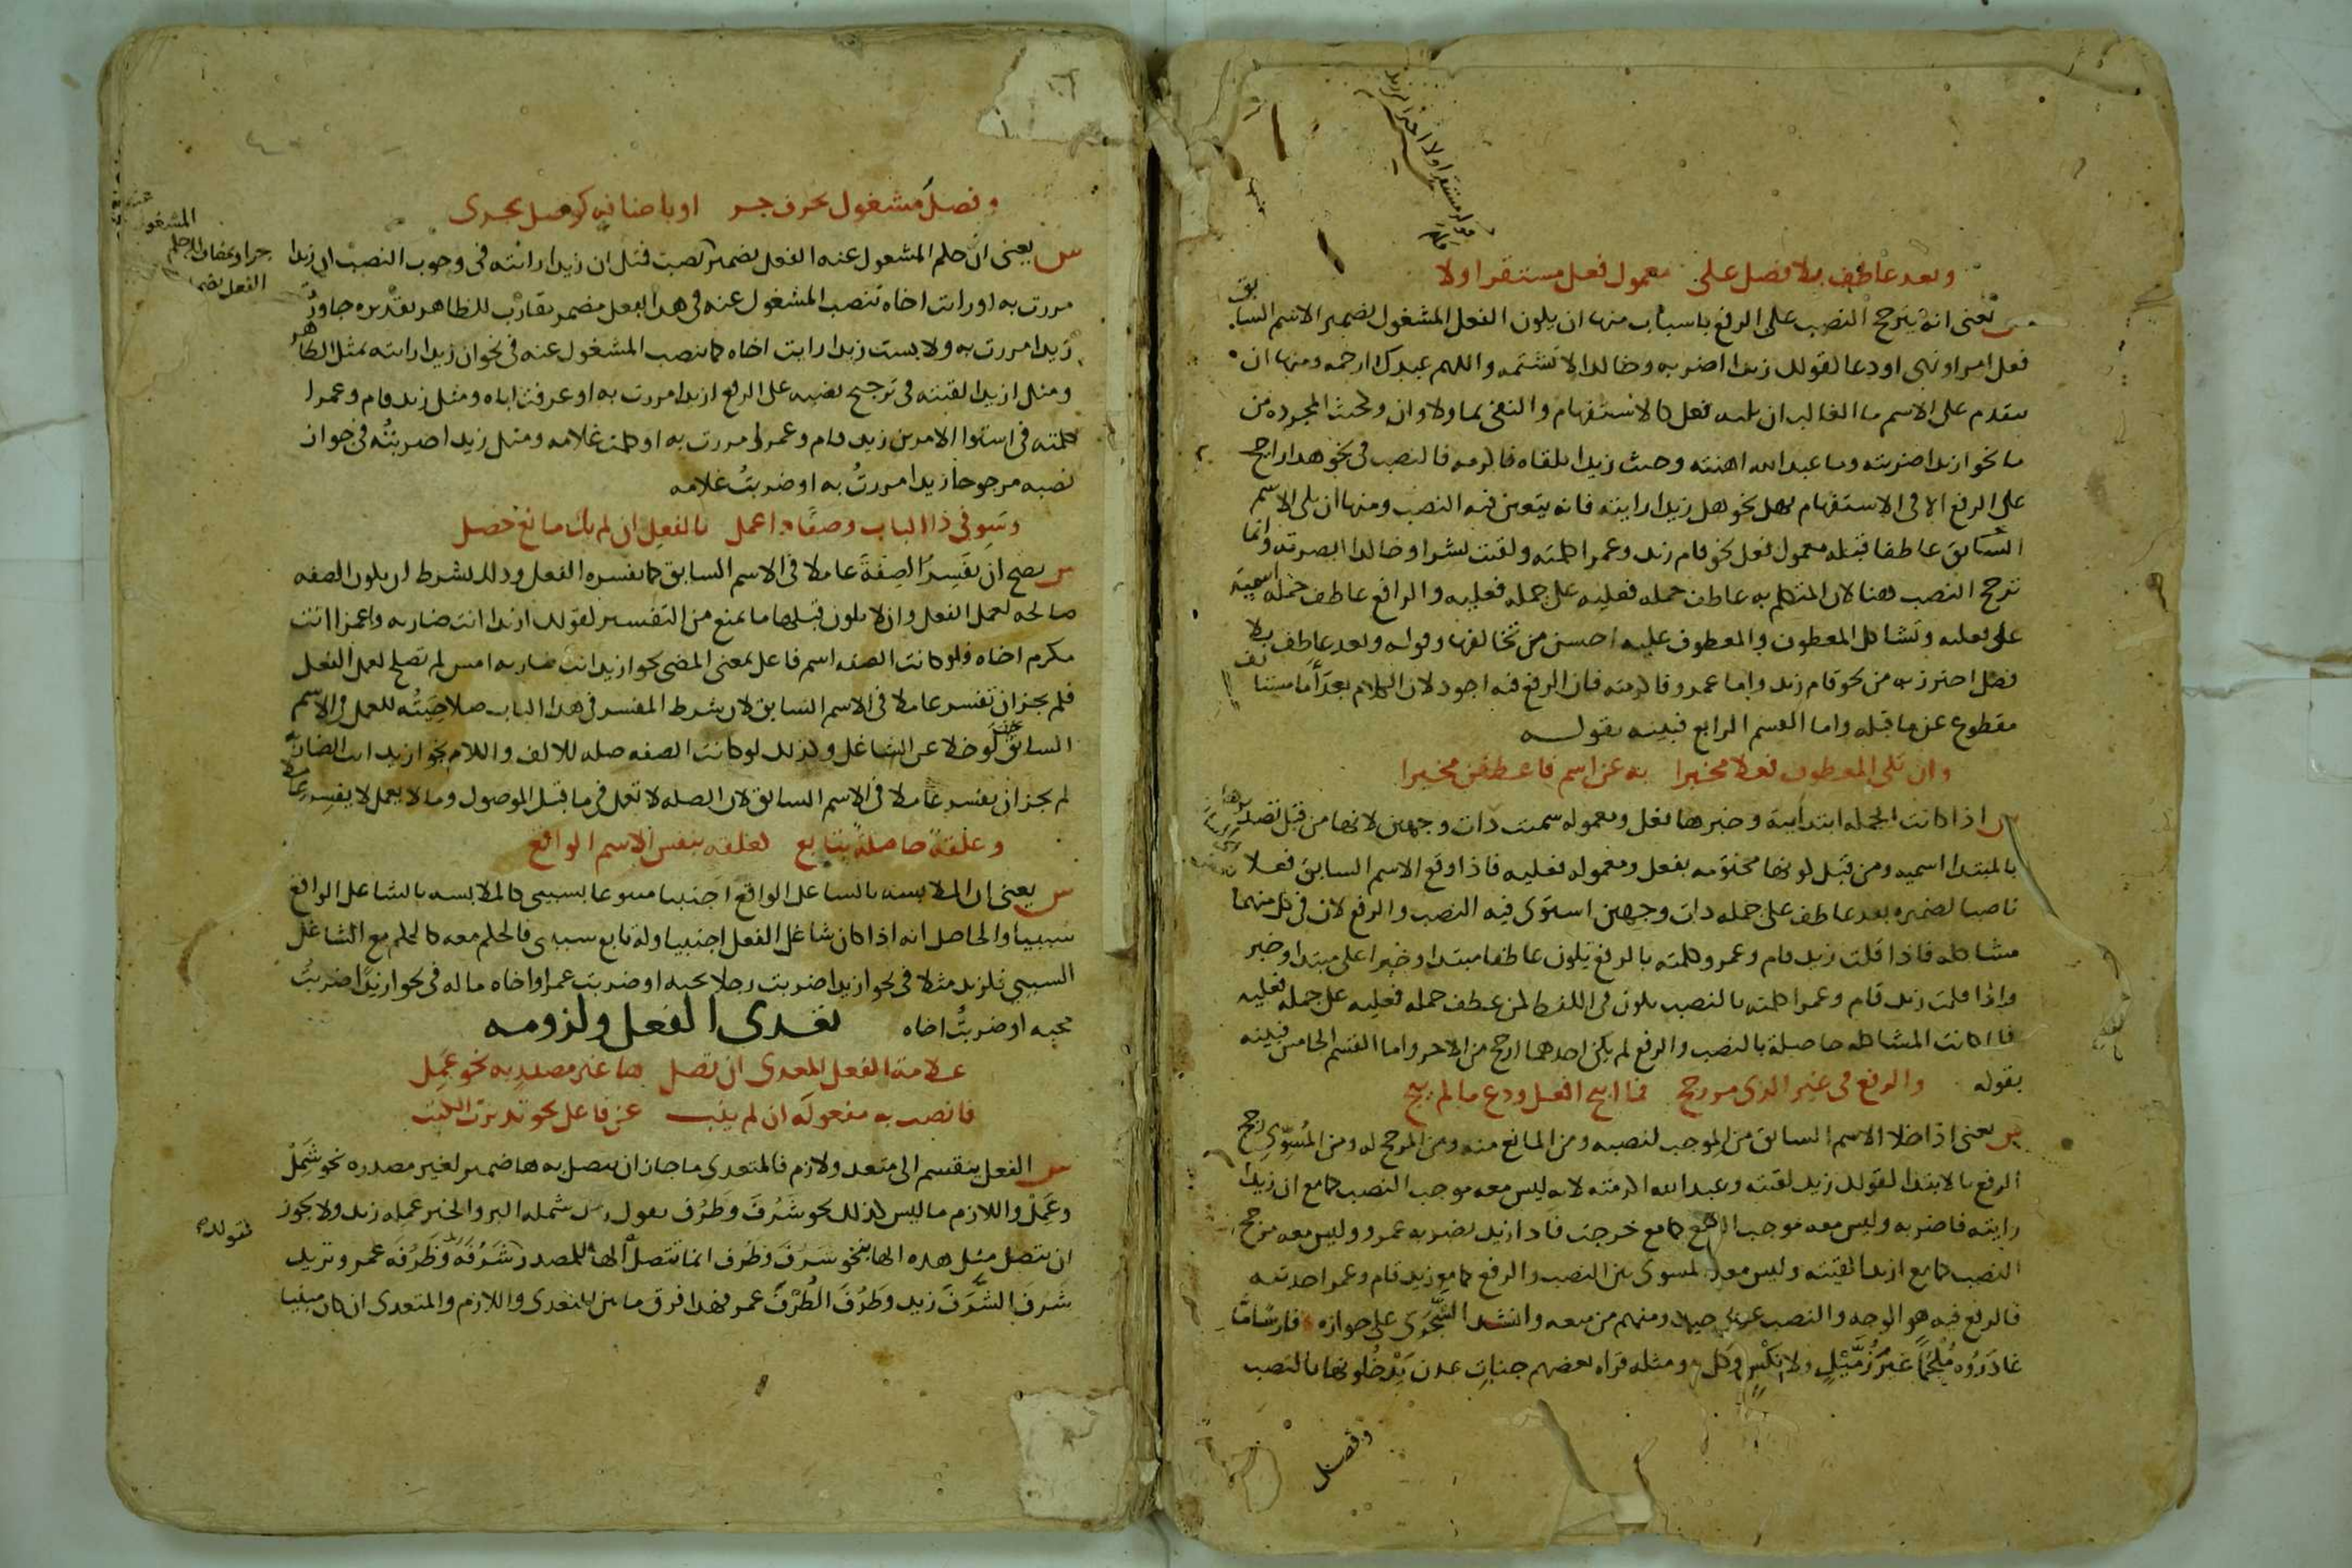 وبعد عاطف بلا فصل على معمول فعل مستقر اولا
ش يعنى انه يترجح النصب على الرفع باسباب منها ان يكون الفعل المشغول بضمير الاسم السابق
فعل امر او نهى او دعا كقولك زيدا اضربه وخالدا لا تشتمه واللهم عبدك ارحمه ومنها ان
يتقدم على الاسم ما الغالب ان يليه فعل كالاستفهام والنفى بما ولا وان وحيث المجرده من
ما نحو ازيدا ضربته وما عبدالله اهنته وحيث زيدا تلقاه فاكرمه فالنصب فى نحو هذا راجح
على الرفع الا فى الاستفهام بهل نحو هل زيدا رايته فانه يتعين فيه النصب ومنها ان يلى الاسم
السابق عاطفا قبله معمول فعل نحو قام زيد وعمرا كلمته ولقيت بشرا وخالدا ابصرته وانما
ترجح النصب هنا لان المتكلم به عاطف جمله فعليه على جمله فعليه والرافع عاطف جمله اسمية
على فعليه وتشاكل المعطوف والمعطوف عليه احسن من تخالفهما وقوله وبعد عاطف بلا
فصل احترز به من نحو قام زيد واما عمرو فاكرمته فان الرفع فيه اجود لان الكلام بعد اما مستانف
مقطوع عن ما قبله واما القسم الرابع فبينه بقوله
وان تلى المعطوف فعلا مخبرا به عن اسم فاعطفن مخيرا
ش اذا كانت الجمله ابتدايية وخبرها فعل ومعموله سميت ذات وجهين لانها من قبل تصديرها
بالمبتدا اسميه ومن قبل كونها مختومه بفعل ومعموله فعليه فاذا وقع الاسم السابق فعلا
ناصبا لضميره بعد عاطف على جمله ذات وجهين استوى فيه النصب والرفع لان فى كل منهما
مشاكله فاذا قلت زيد قام وعمرو كلمته بالرفع يكون عاطفا مبتدا وخبرا على مبتدا وخبر
واذا قلت زيد قام وعمرا كلمته بالنصب يكون فى اللفظ كمن عطف جمله فعليه على جمله فعليه
فلما كانت المشاكله حاصلة بالنصب والرفع لم يكن احدهما ارجح من الاخر واما القسم الخامس فبينه
بقوله والرفع فى غير الذى مر رجح فما ابيح افعل ودع ما لم يبح
ش يعنى اذا خلا الاسم السابق من الموجب لنصبه ومن المانع منه ومن المرجح له ومن المسوى رجح
الرفع بالابتدا كقولك زيد لقيته وعبدالله اكرمته لانه ليس معه موجب النصب كما مع ان زيدا
رايته فاضربه وليس معه موجب الرفع كما مع خرجت فاذا زيد يضربه عمرو وليس معه مرجح
النصب كما مع ازيدا لقيته وليس معه المسوى بين النصب والرفع كما مع زيد قام وعمرا حدثته
فالرفع فيه هو الوجه والنصب عربى جيد ومنهم من منعه وانشد الشجرى على جوازه فارسا ما
غادروه ملحما غير زميل ولا نكس وكل ومثله قراه بعضهم جنات عدن يدخلونها بالنصب
وفصل
وفصل مشغول بحرف جر او باضافة كوصل يجرى
ش يعنى ان حكم المشغول عنه الفعل بضمير نصب قبل ان زيدا رايته فى وجوب النصب ان زيدا
مررت به او رايت اخاه تنصب المشغول عنه فى هذا بفعل مضمر مقارب للظاهر تقديره جاوزت
زيدا مررت به ولابست زيدا رايت اخاه كما تنصب المشغول عنه فى نحو ان زيدا رايته بمثل الظاهر
ومثل ازيدا لقيته فى ترجيح نصبه على الرفع ازيدا مررت به او عرفت اباه ومثل زيد قام وعمرا
كلمته فى استوا الامرين زيد قام وعمرا مررت به او كلمت غلامه ومثل زيدا ضربته فى جواز
نصبه مرجوحا زيدا مررت به او ضربت غلامه
وسو فى ذا الباب وصفا ذا عمل بالفعل ان لم يك مانع حصل
ش يصح ان تفسر الصفة عاملا فى الاسم السابق كما يفسره الفعل وذلك بشرط ان يكون الصفه
صالحه لعمل الفعل وان لا يكون قبلها ما يمنع من التفسير كقولك ازيدا انت ضاربه واعمرا انت
مكرم اخاه فلو كانت الصفه اسم فاعل بمعنى المضى نحو ازيد انت ضاربه امس لم تصلح لعمل الفعل
فلم يجز ان تفسر عاملا فى الاسم السابق لان شرط المفسر فى هذا الباب صلاحيته للعمل فى الاسم
السابق لو خلا عن الشاغل وكذلك لو كانت الصفه صله للالف واللام نحو ازيد انت الضاربه
لم يجز ان يفسر عاملا فى الاسم السابق لان الصله لا تعمل فى ما قبل الموصول وما لا يعمل لا يفسر عاملا
وعلقة حاصلة بتابع كعلقه بنفس الاسم الواقع
ش يعنى ان الملابسه بالشاغل الواقع اجنبيا متبوعا بسببى كالملابسه بالشاغل الواقع
سببيا والحاصل انه اذا كان شاغل الفعل اجنبيا وله تابع سببى فالحكم معه كالحكم مع الشاغل
السببى فلزيد مثلا فى نحو ازيدا ضربت رجلا يحبه او ضربت عمرا واخاه ماله فى نحو ازيدا ضربت
محبه او ضربت اخاه تعدى الفعل ولزومه
علامة الفعل المعدى ان تصل ها غير مصدر به نحو عمل
فانصب به مفعوله ان لم ينب عن فاعل نحو تدبرت الكتب
ش الفعل ينقسم الى متعد ولازم فالمتعدى ما جاز ان يتصل به ها ضمير لغير مصدره نحو شمل
وعمل واللازم ما ليس كذلك نحو شرف وظرف تقول شمله البر والخير عمله زيد ولا يجوز
ان يتصل مثل هذه الها بنحو شرف وظرف انما تتصل الها للمصدر شرفه وظرفه عمرو تريد
شرف الشرف زيد وظرف الظرف عمرو فهذا فرق ما بين المتعدى واللازم والمتعدى ان كان مبنيا